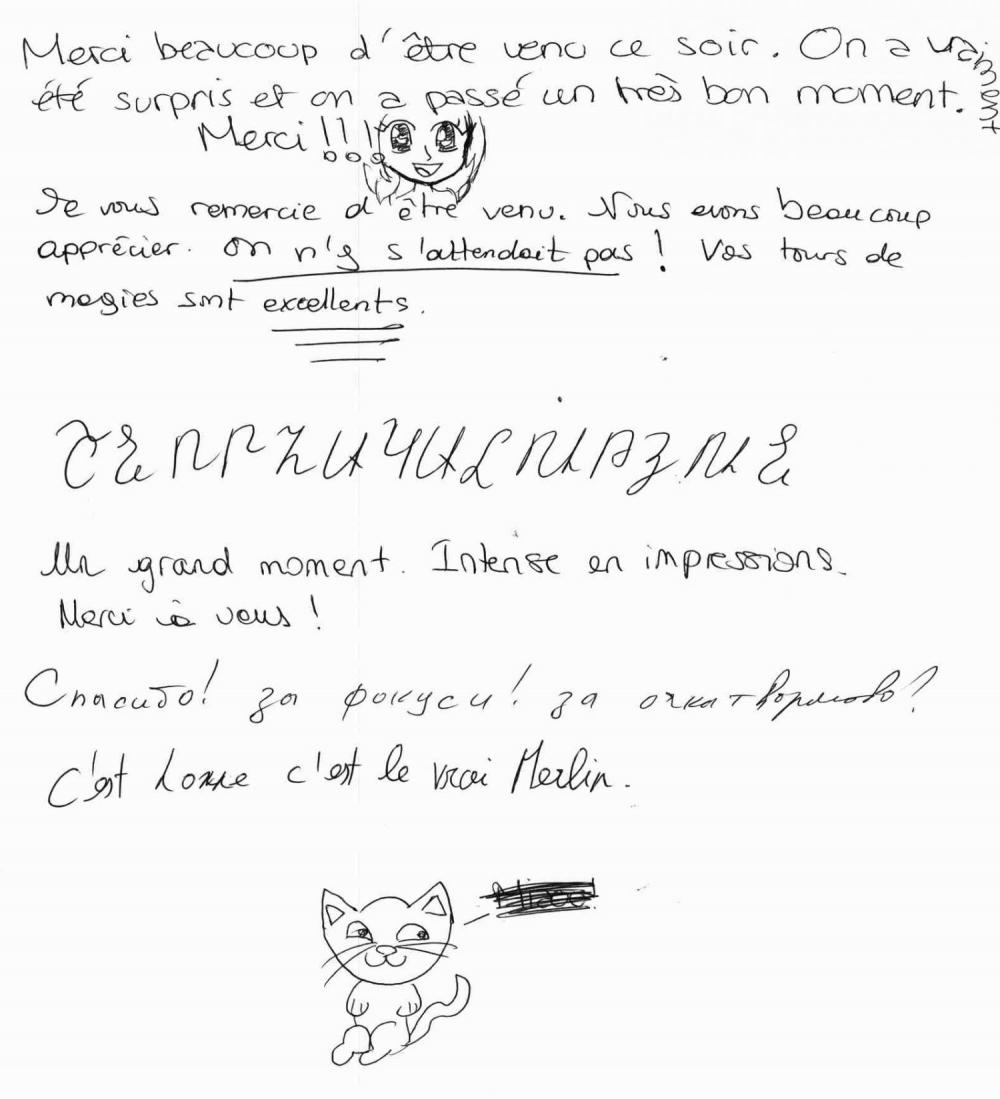 Merci beaucoup d'être venu ce soir. On a vraiment
été surpris et on a passé un très bon moment.
Merci!!!
Je vous remercie d'être venu. Nous avons beaucoup
apprécier. On n'y s'attendait pas ! Vos tours de
magies sont excellents.
Un grand moment. Intense en impressions.
Merci à vous !
Спасибо! за фокуси! за
C'est l'homme c'est le vrai Merlin.